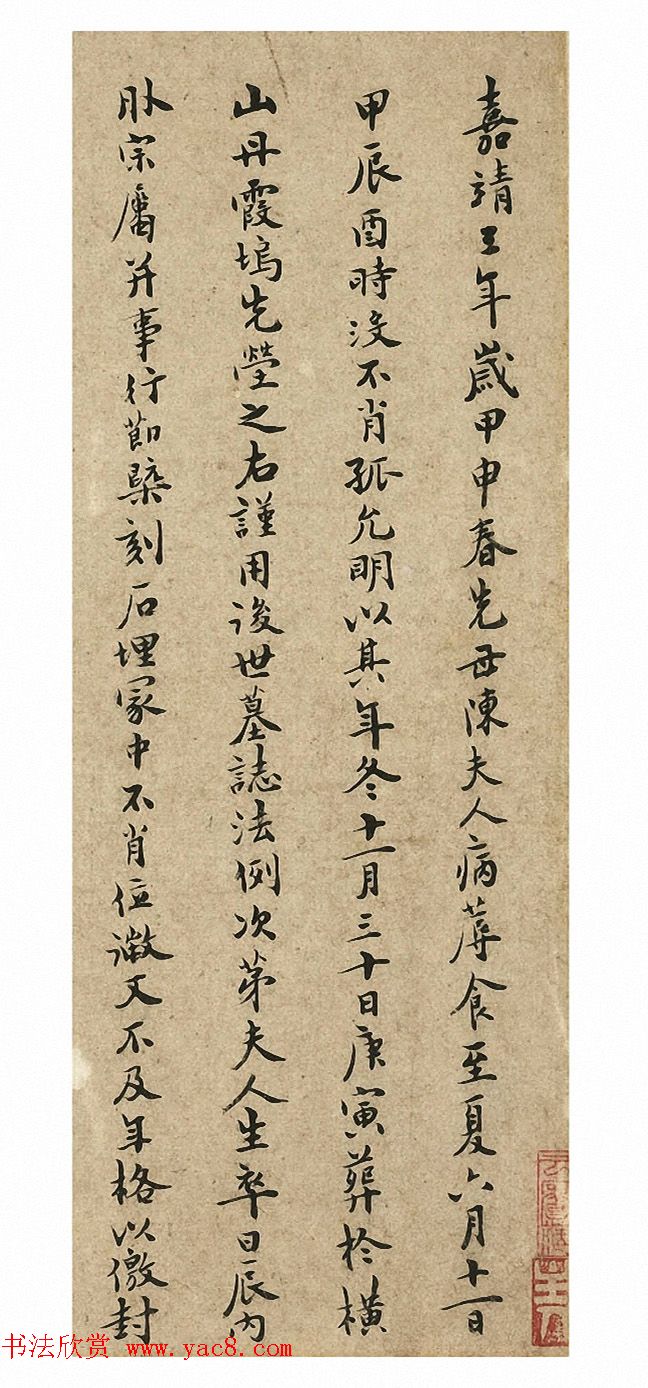 嘉靖三年歲甲申春先母陳夫人病蓐食至夏六月十一日
甲辰酉時沒不肖孤允明以其年冬十一月三十日庚寅葬於橫
山丹霞塢先塋之右謹用後世墓誌法例次第夫人生卒日辰內
外宗屬并事行節槩刻石埋冢中不肖位微文不及年格以徼封
书法欣赏 www.yac8.com